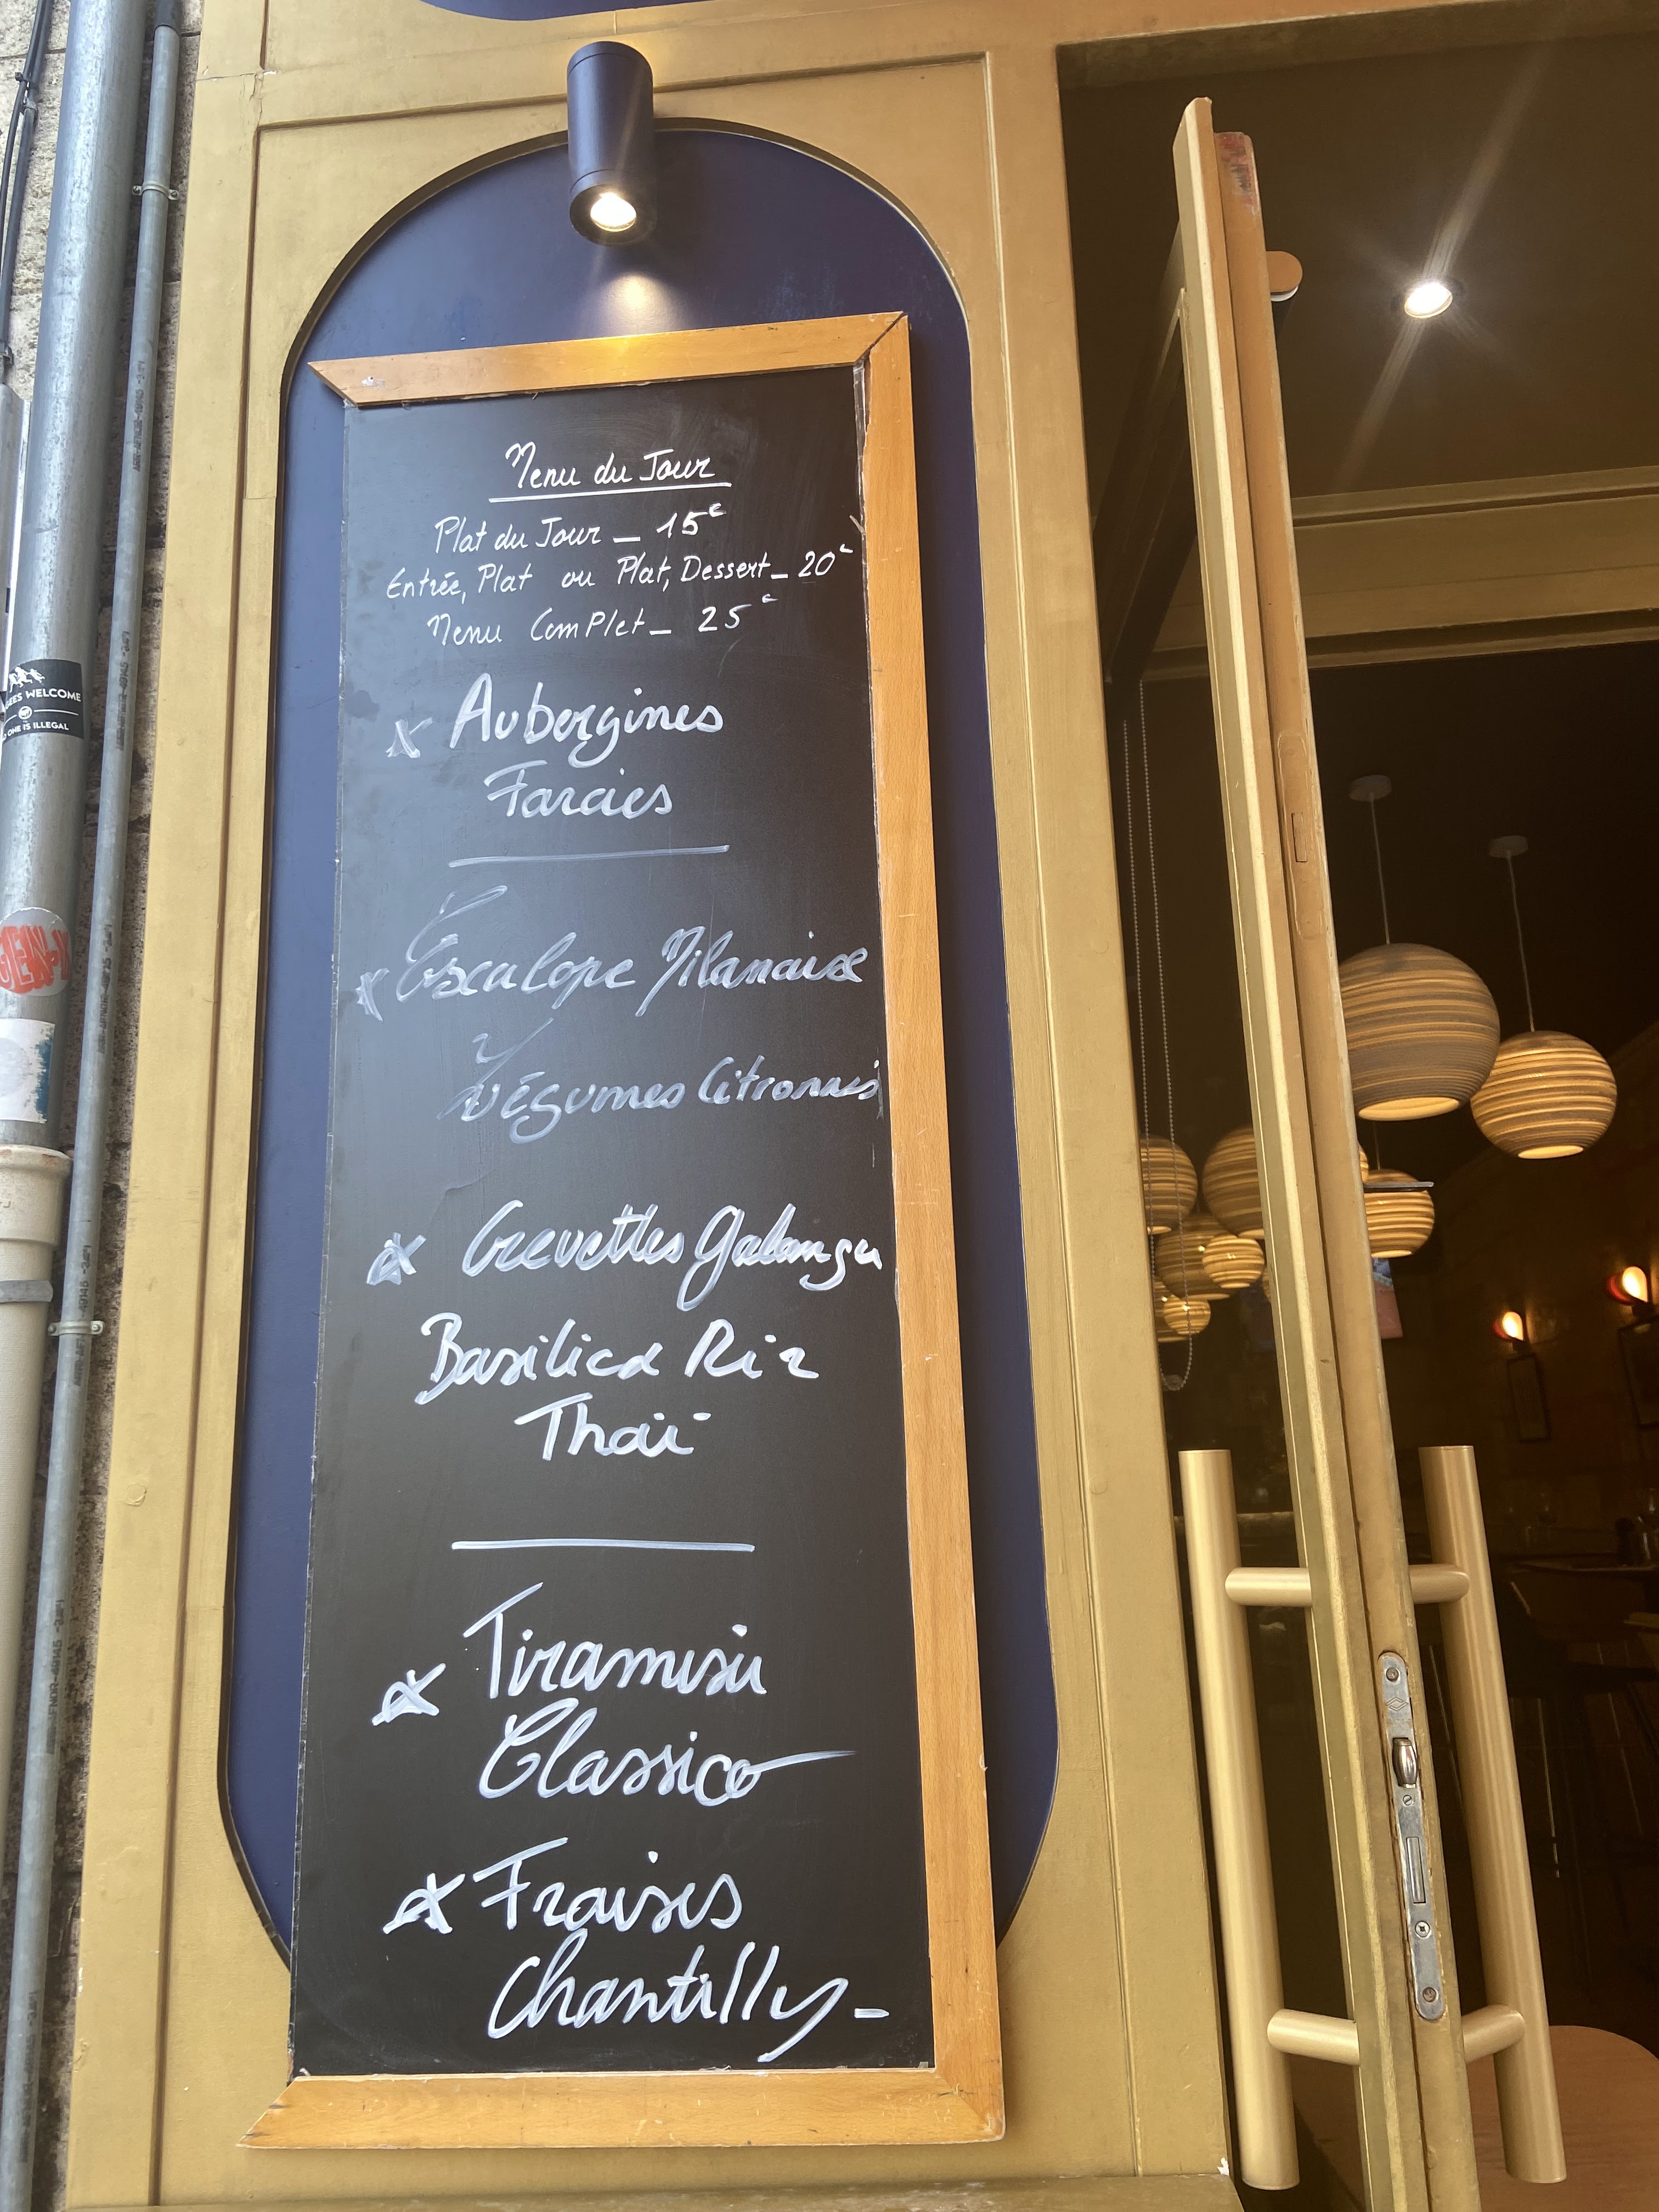 Menu du Jour
Plat du Jour _ 15€
Entrée, Plat ou Plat, Dessert _ 20€
Menu ComPlet _ 25€
x Aubergines
Farcies
x Escalope Milanaise
Légumes Citronnés
x Crevettes Galanga
Basilic & Riz
Thaï
x Tiramisù
Classico
x Fraises
Chantilly -
GEES WELCOME
ONE IS ILLEGAL